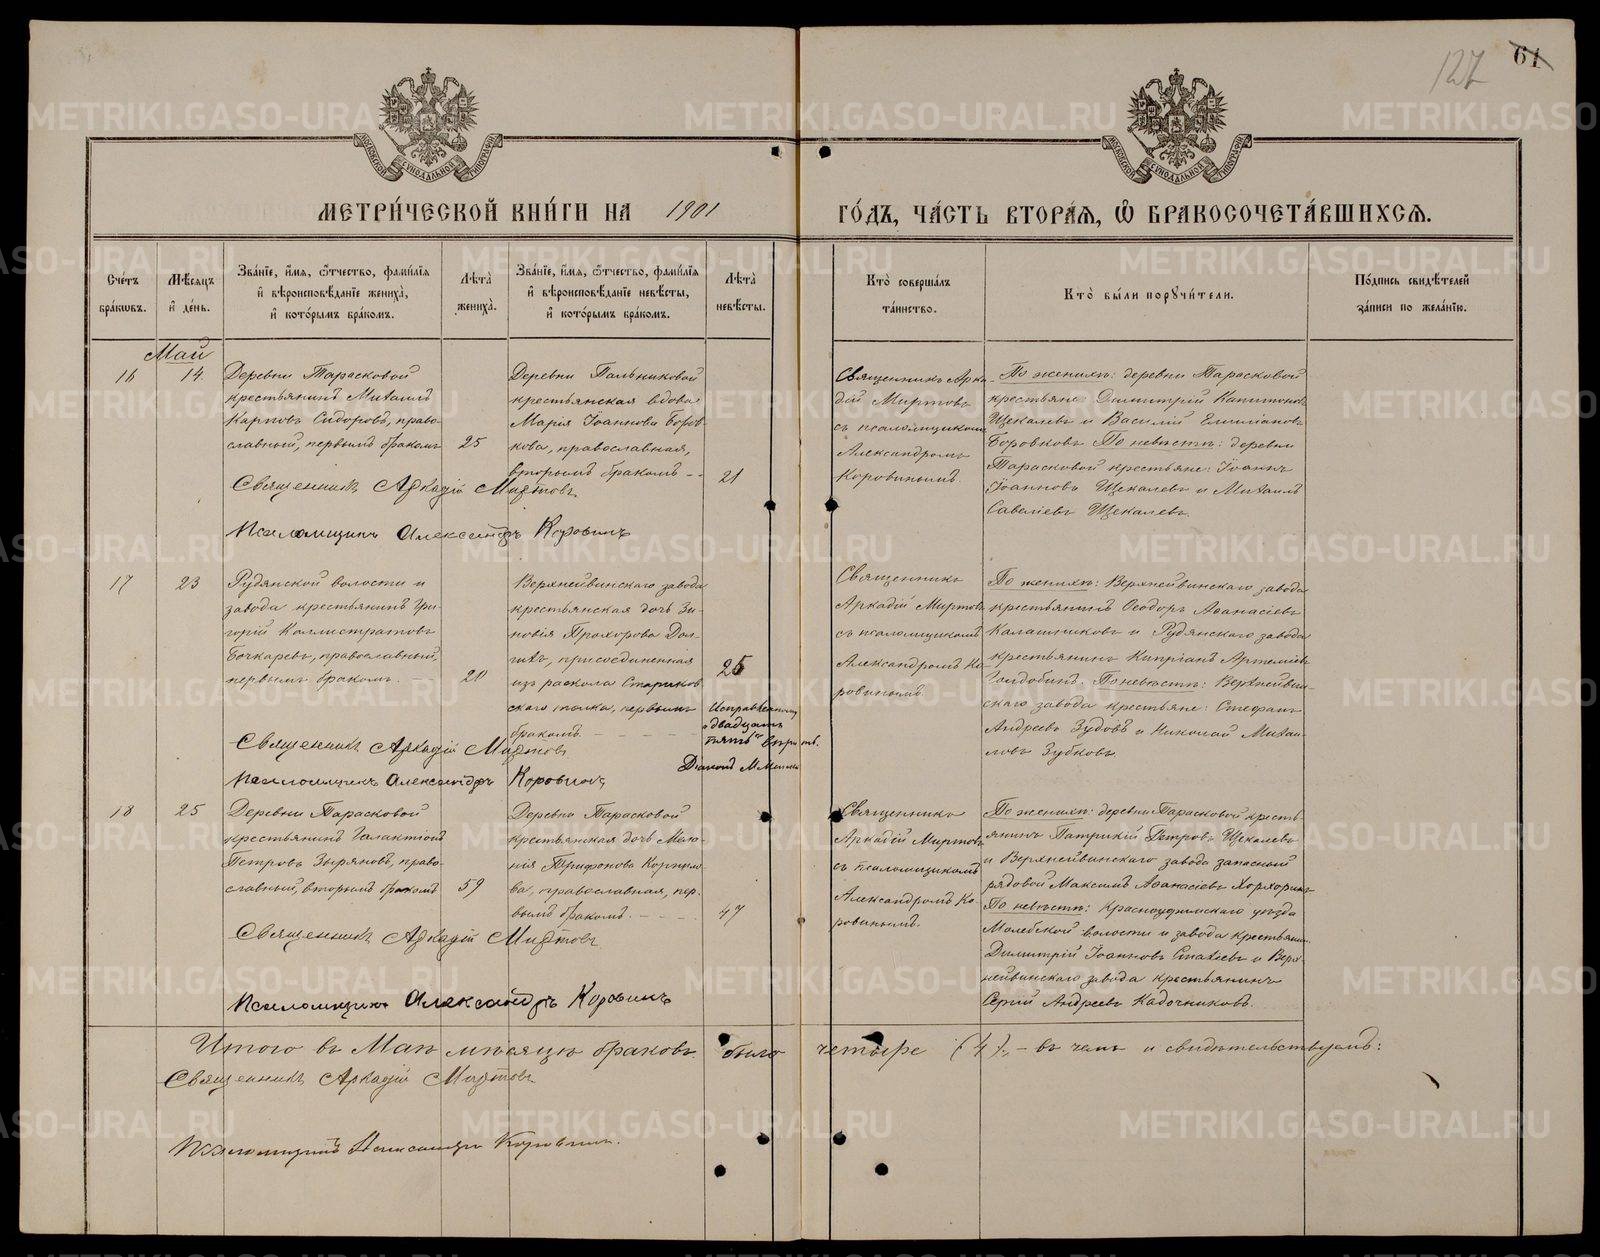 127 61
МЕТРИ́ЧЕСКОЙ КНИ́ГИ НА 1901 ГО́ДЪ, ЧА́СТЬ ВТОРА́Я, Ѽ БРАКОСОЧЕТА́ВШИХСѦ.
МОСКОВСКОЙ СУНОДАЛЬНОЙ ТИПОГРАФІИ
МОСКОВСКОЙ СУНОДАЛЬНОЙ ТИПОГРАФІИ
Сче́тъ
бра́кѡвъ.
Мѣсяцъ
и҆ де́нь.
Зва́нїе, и҆́мя, ѻ҆́тчество, фами́лїя
и҆ вѣроисповѣ́данїе жениха̀,
и҆ кото́рымъ бра́комъ.
Лѣта̀
жениха̀.
Зва́нїе, и҆́мя, ѻ҆́тчество, фами́лїя
и҆ вѣроисповѣ́данїе невѣ́сты,
и҆ кото́рымъ бра́комъ.
Лѣта̀
невѣ́сты.
Кто̀ соверша́лъ
та́инство.
Кто̀ бы́ли порꙋчи́тели.
По́дпись свидѣ́телей
за́писи по жела́нїю.
Май
16
14.
Деревни Тарасковой
крестьянинъ Михаилъ
Карповъ Сидоровъ, право-
славный, первымъ бракомъ
25
Деревни Пальниковой
крестьянская вдова
Марія Іоаннова Боров-
кова, православная,
вторымъ бракомъ --
21
Священникъ Арка-
дій Миртовъ
съ псаломщикомъ
Александромъ
Коровинымъ.
По женихѣ: деревни Тарасковой
крестьяне: Димитрій Капитоновъ
Щекалевъ и Василій Емиліановъ
Боровковъ По невѣстѣ: деревни
Тарасковой крестьяне: Іоаннъ
Іоанновъ Щекалевъ и Михаилъ
Савеліевъ Щекалевъ.
Священникъ Аркадій Миртовъ
Псаломщикъ Александръ Коровинъ
17
23
Рудянской волости и
завода крестьянинъ Гри-
горій Каллистратовъ
Бочкаревъ, православный,
первымъ бракомъ. —
20
Верхнейвинскаго завода
крестьянская дочь Зи-
новія Прохорова Дол-
гихъ, присоединенная
изъ раскола Стариков-
скаго толка, первымъ
бракомъ. — — — —
25
Исправленному
"двадцать
пять" вѣрить.
Діаконъ
Священникъ
Аркадій Миртовъ
съ псаломщикомъ
Александромъ Ко-
ровинымъ.
По женихѣ: Верхнейвинскаго завода
крестьянинъ Ѳеодоръ Аѳанасіевъ
Калашниковъ и Рудянскаго завода
крестьянинъ Кипріанъ Артеміевъ
Голдобинъ. По невѣстѣ: Верхнейвин-
скаго завода крестьяне: Стефанъ
Андреевъ Зудовъ и Николай Михаи-
ловъ Зубковъ.
Священникъ Аркадій Миртовъ
Псаломщикъ Александръ Коровинъ
18
25
Деревни Тарасковой
крестьянинъ Галактіонъ
Петровъ Зыряновъ, право-
славный, вторымъ бракомъ
59
Деревни Тарасковой
крестьянская дочь Мела-
нія Трифонова Корнило-
ва, православная, пер-
вымъ бракомъ. — — — .
47
Священникъ
Аркадій Миртовъ
съ псаломщикомъ
Александромъ Ко-
ровинымъ.
По женихѣ: деревни Тарасковой кресть-
янинъ Патрикій Петровъ Щекалевъ
и Верхнейвинскаго завода запасный
рядовой Максимъ Аѳанасіевъ Хорхоринъ
По невѣстѣ: Красноуфимскаго уѣзда
Молебской волости и завода крестьянин.
Димитрій Іоанновъ Стахѣевъ и Верх-
нейвинскаго завода крестьянинъ
Сергій Андреевъ Кадочниковъ.
Священникъ Аркадій Миртовъ
Псаломщикъ Александръ Коровинъ
Итого въ Маѣ мѣсяцѣ браковъ было четыре (4). — въ чемъ и свидѣтельствуемъ:
Священникъ Аркадій Миртовъ
Псаломщикъ Александръ Коровинъ.
METRIKI.GASO-URAL.RU